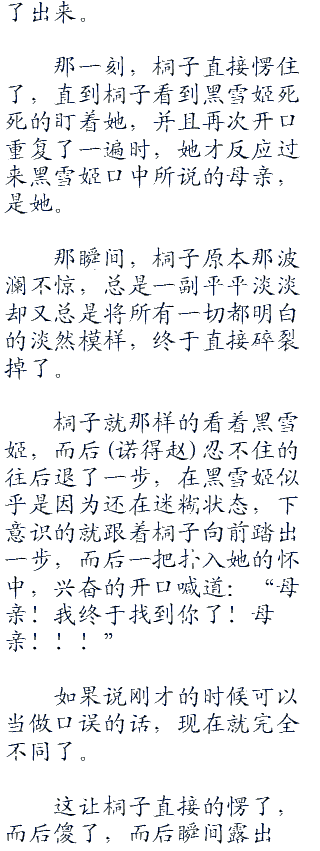 了出来。
那一刻，桐子直接愣住
了，直到桐子看到黑雪姬死
死的盯着她，并且再次开口
重复了一遍时，她才反应过
来黑雪姬口中所说的母亲，
是她。
那瞬间，桐子原本那波
澜不惊，总是一副平平淡淡
却又总是将所有一切都明白
的淡然模样，终于直接碎裂
掉了。
桐子就那样的看着黑雪
姬，而后(诺得赵)忍不住的
往后退了一步，在黑雪姬似
乎是因为还在迷糊状态，下
意识的就跟着桐子向前踏出
一步，而后一把扑入她的怀
中，兴奋的开口喊道：“母
亲！我终于找到你了！母
亲！！！”
如果说刚才的时候可以
当做口误的话，现在就完全
不同了。
这让桐子直接的愣了，
而后傻了，而后瞬间露出